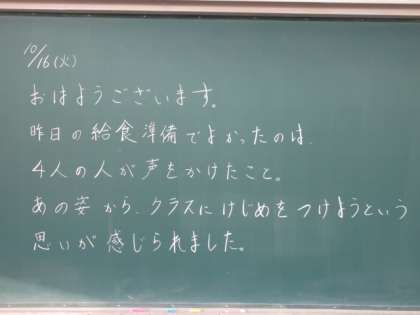 10/16(火)
おはようございます。
昨日の給食準備でよかったのは、
4人の人が声をかけたこと。
あの姿から、クラスにけじめをつけようという
思いが感じられました。